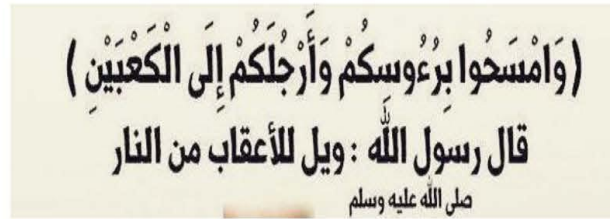 (وَامْسَحُوا بِرُءُوسِكُمْ وَأَرْجُلَكُمْ إِلَى الْكَعْبَيْنِ)
قال رسول اللَّه : ويل للأعقاب من النار
صلى الله عليه وسلم